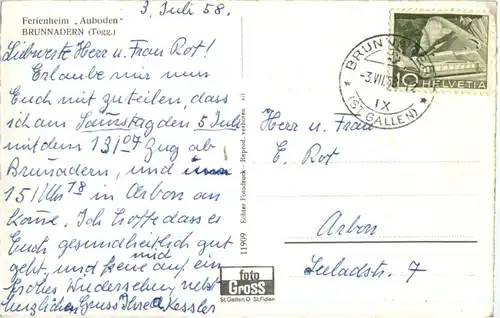 3. Juli 58.
Ferienheim „Auboden"
BRUNNADERN (Togg.)
Liebwerte Herr u. Frau Rot!
Erlaube mir nun
Euch mit zuteilen, dass
ich am Samstag den 5 Juli
mit dem 13/04 Zug ab
Brunadern, und
15 Uhr 18 in Arbon an
kome. Ich hoffe dass es
Euch gesundheitlich gut
geht, und freue mich auf ein
frohes Wiedersehen nebst
herzlichen Gruss Ihre A. Kessler
11909 Echter Fotodruck - Reprod. verboten
foto
Gross
St. Gallen O St. Fiden
HELVETIA
10
BRUNNADERN
-3.VII.58-12
IX
(ST. GALLEN)
Herr u. Frau
E. Rot
Arbon
Seeladstr. 7